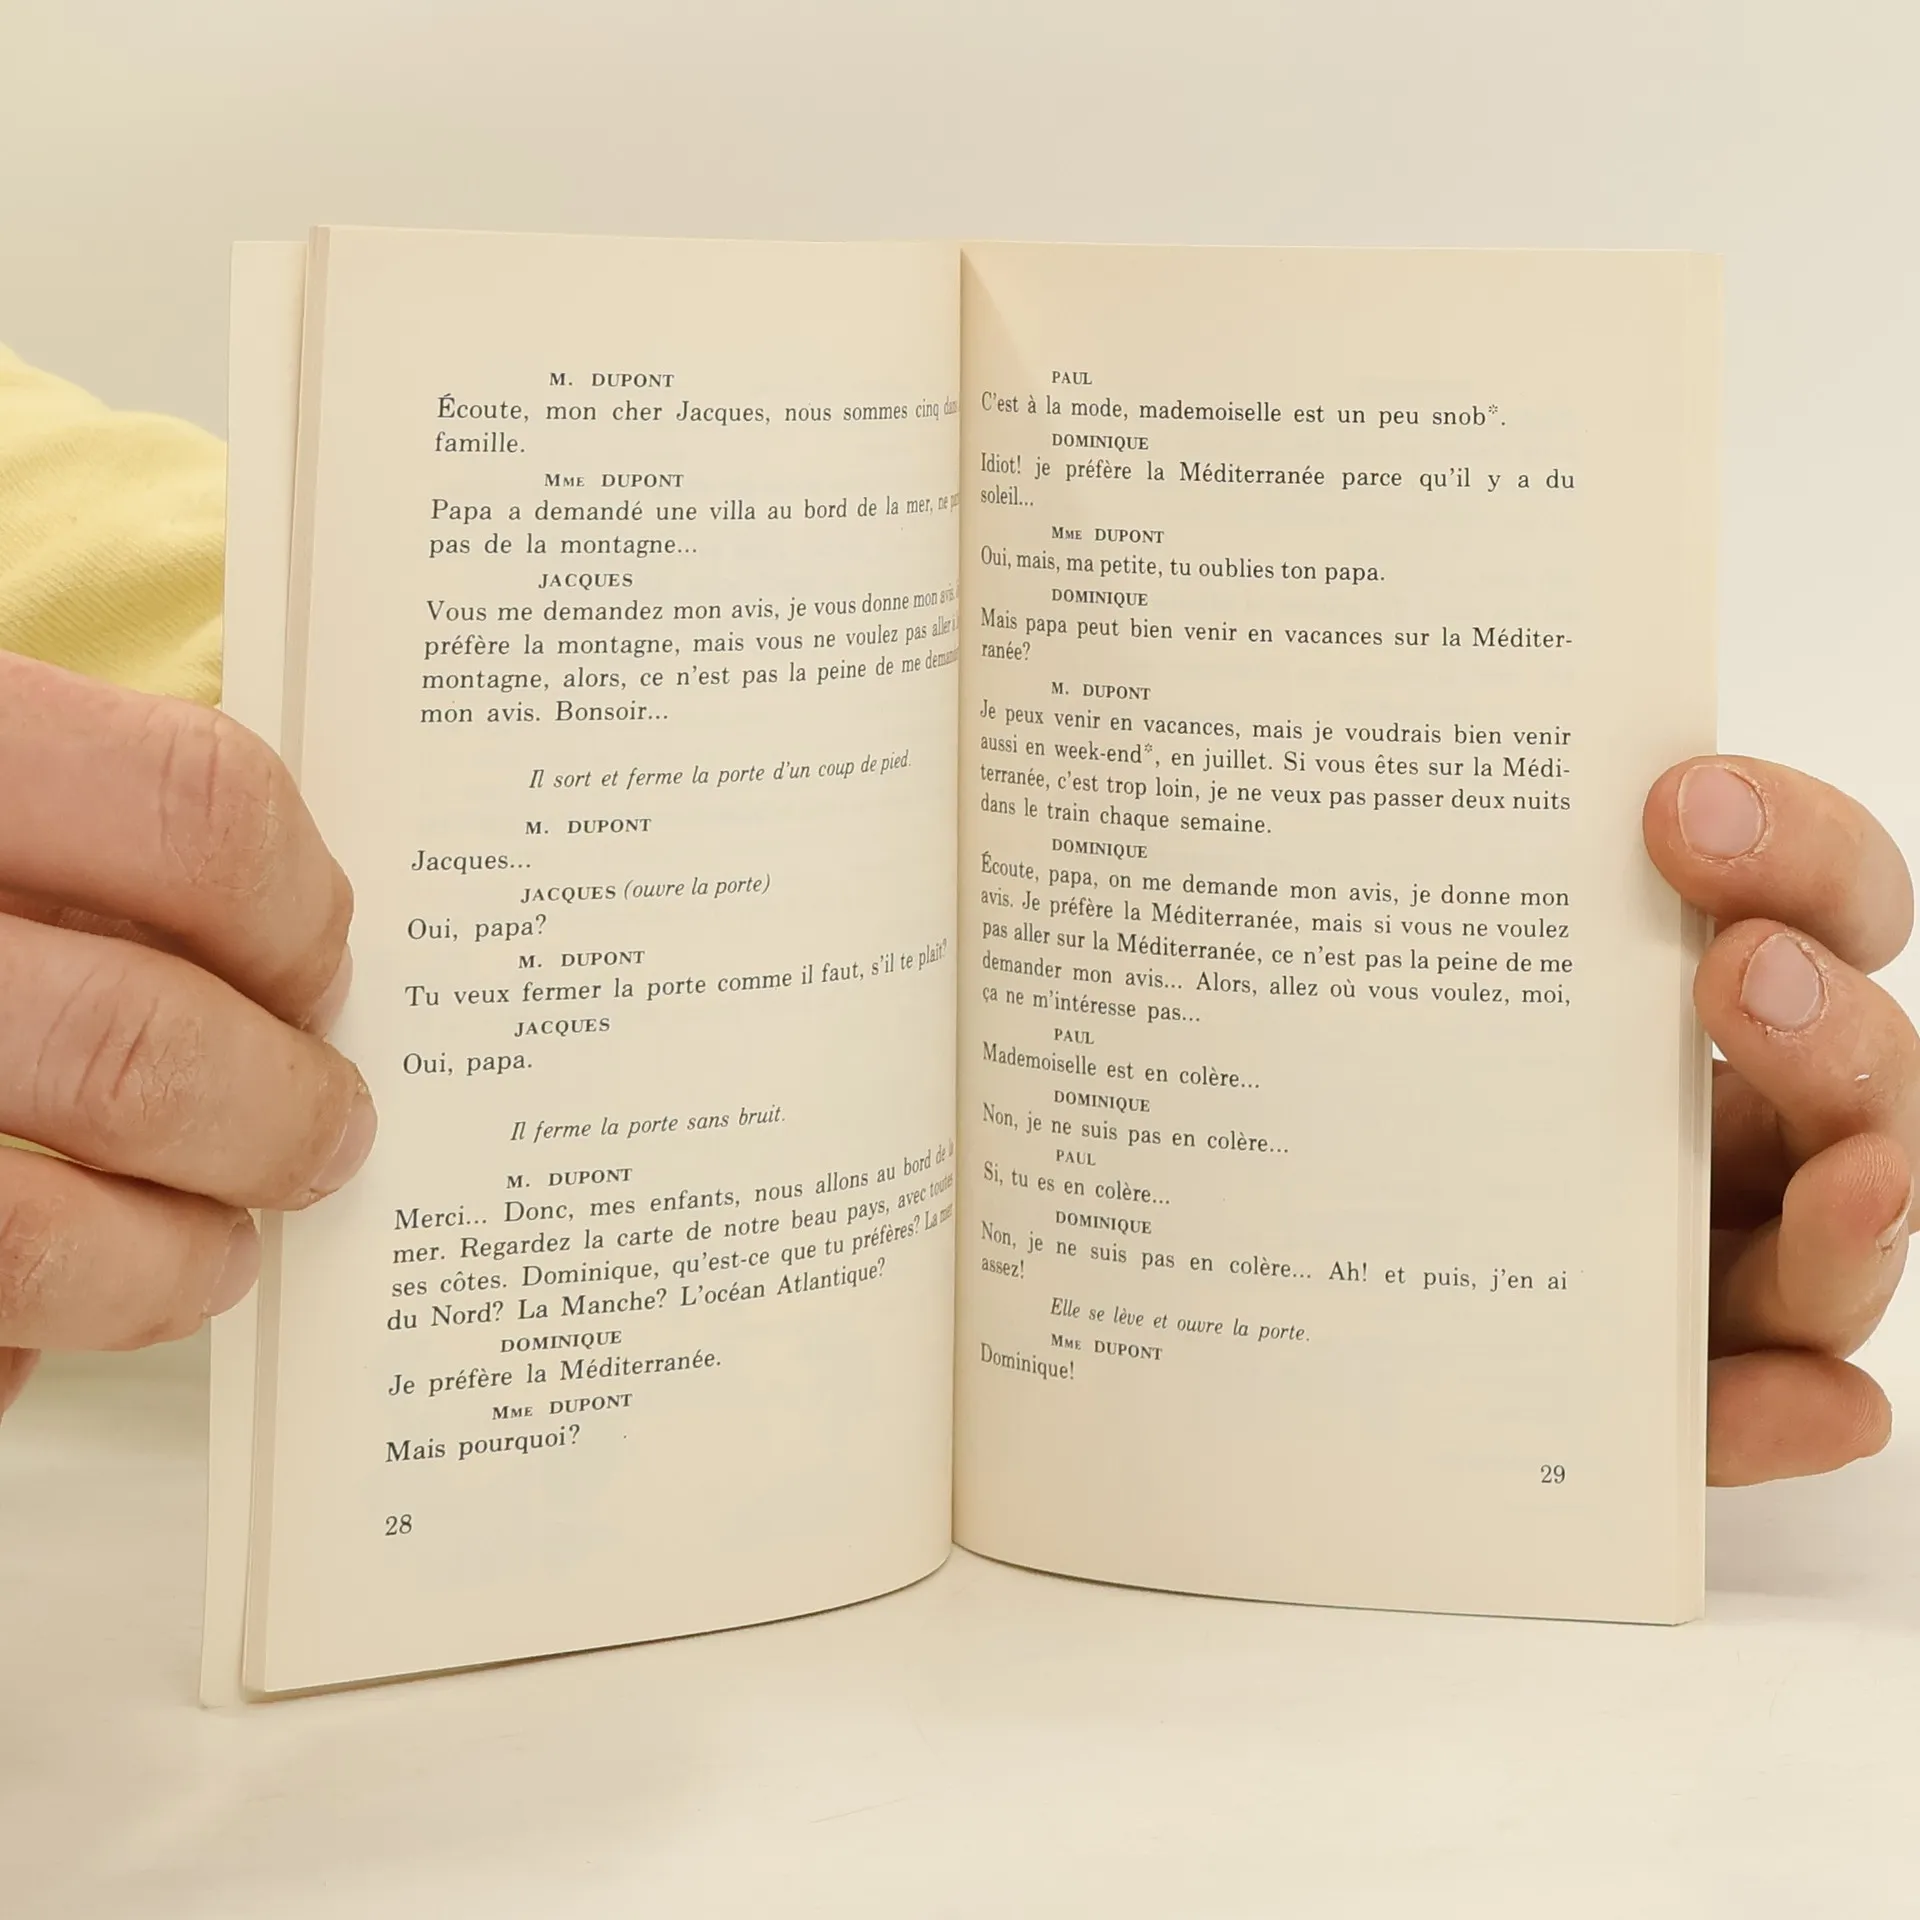 M. DUPONT
Écoute, mon cher Jacques, nous sommes cinq dans
famille.
MME DUPONT
Papa a demandé une villa au bord de la mer, ne
pas de la montagne...
JACQUES
Vous me demandez mon avis, je vous donne mon avis.
préfère la montagne, mais vous ne voulez pas aller à
montagne, alors, ce n'est pas la peine de me
mon avis. Bonsoir...
Il sort et ferme la porte d'un coup de pied.
M. DUPONT
Jacques...
JACQUES (ouvre la porte)
Oui, papa?
M. DUPONT
Tu veux fermer la porte comme il faut, s'il te plaît?
JACQUES
Oui, papa.
Il ferme la porte sans bruit.
M. DUPONT
Merci... Donc, mes enfants, nous allons au bord de la
mer. Regardez la carte de notre beau pays, avec toutes
ses côtes. Dominique, qu'est-ce que tu préfères? La mer
du Nord? La Manche? L'océan Atlantique?
DOMINIQUE
Je préfère la Méditerranée.
MME DUPONT
Mais pourquoi?
28
PAUL
C'est à la mode, mademoiselle est un peu snob*.
DOMINIQUE
Idiot! je préfère la Méditerranée parce qu'il y a du
soleil...
MME DUPONT
Oui, mais, ma petite, tu oublies ton papa.
DOMINIQUE
Mais papa peut bien venir en vacances sur la Méditer-
ranée?
M. DUPONT
Je peux venir en vacances, mais je voudrais bien venir
aussi en week-end*, en juillet. Si vous êtes sur la Médi-
terranée, c'est trop loin, je ne veux pas passer deux nuits
dans le train chaque semaine.
DOMINIQUE
Écoute, papa, on me demande mon avis, je donne mon
avis. Je préfère la Méditerranée, mais si vous ne voulez
pas aller sur la Méditerranée, ce n'est pas la peine de me
demander mon avis... Alors, allez où vous voulez, moi,
ça ne m'intéresse pas...
PAUL
Mademoiselle est en colère...
DOMINIQUE
Non, je ne suis pas en colère...
PAUL
Si, tu es en colère...
DOMINIQUE
Non, je ne suis pas en colère... Ah! et puis, j'en ai
assez!
Elle se lève et ouvre la porte.
MME DUPONT
Dominique!
29